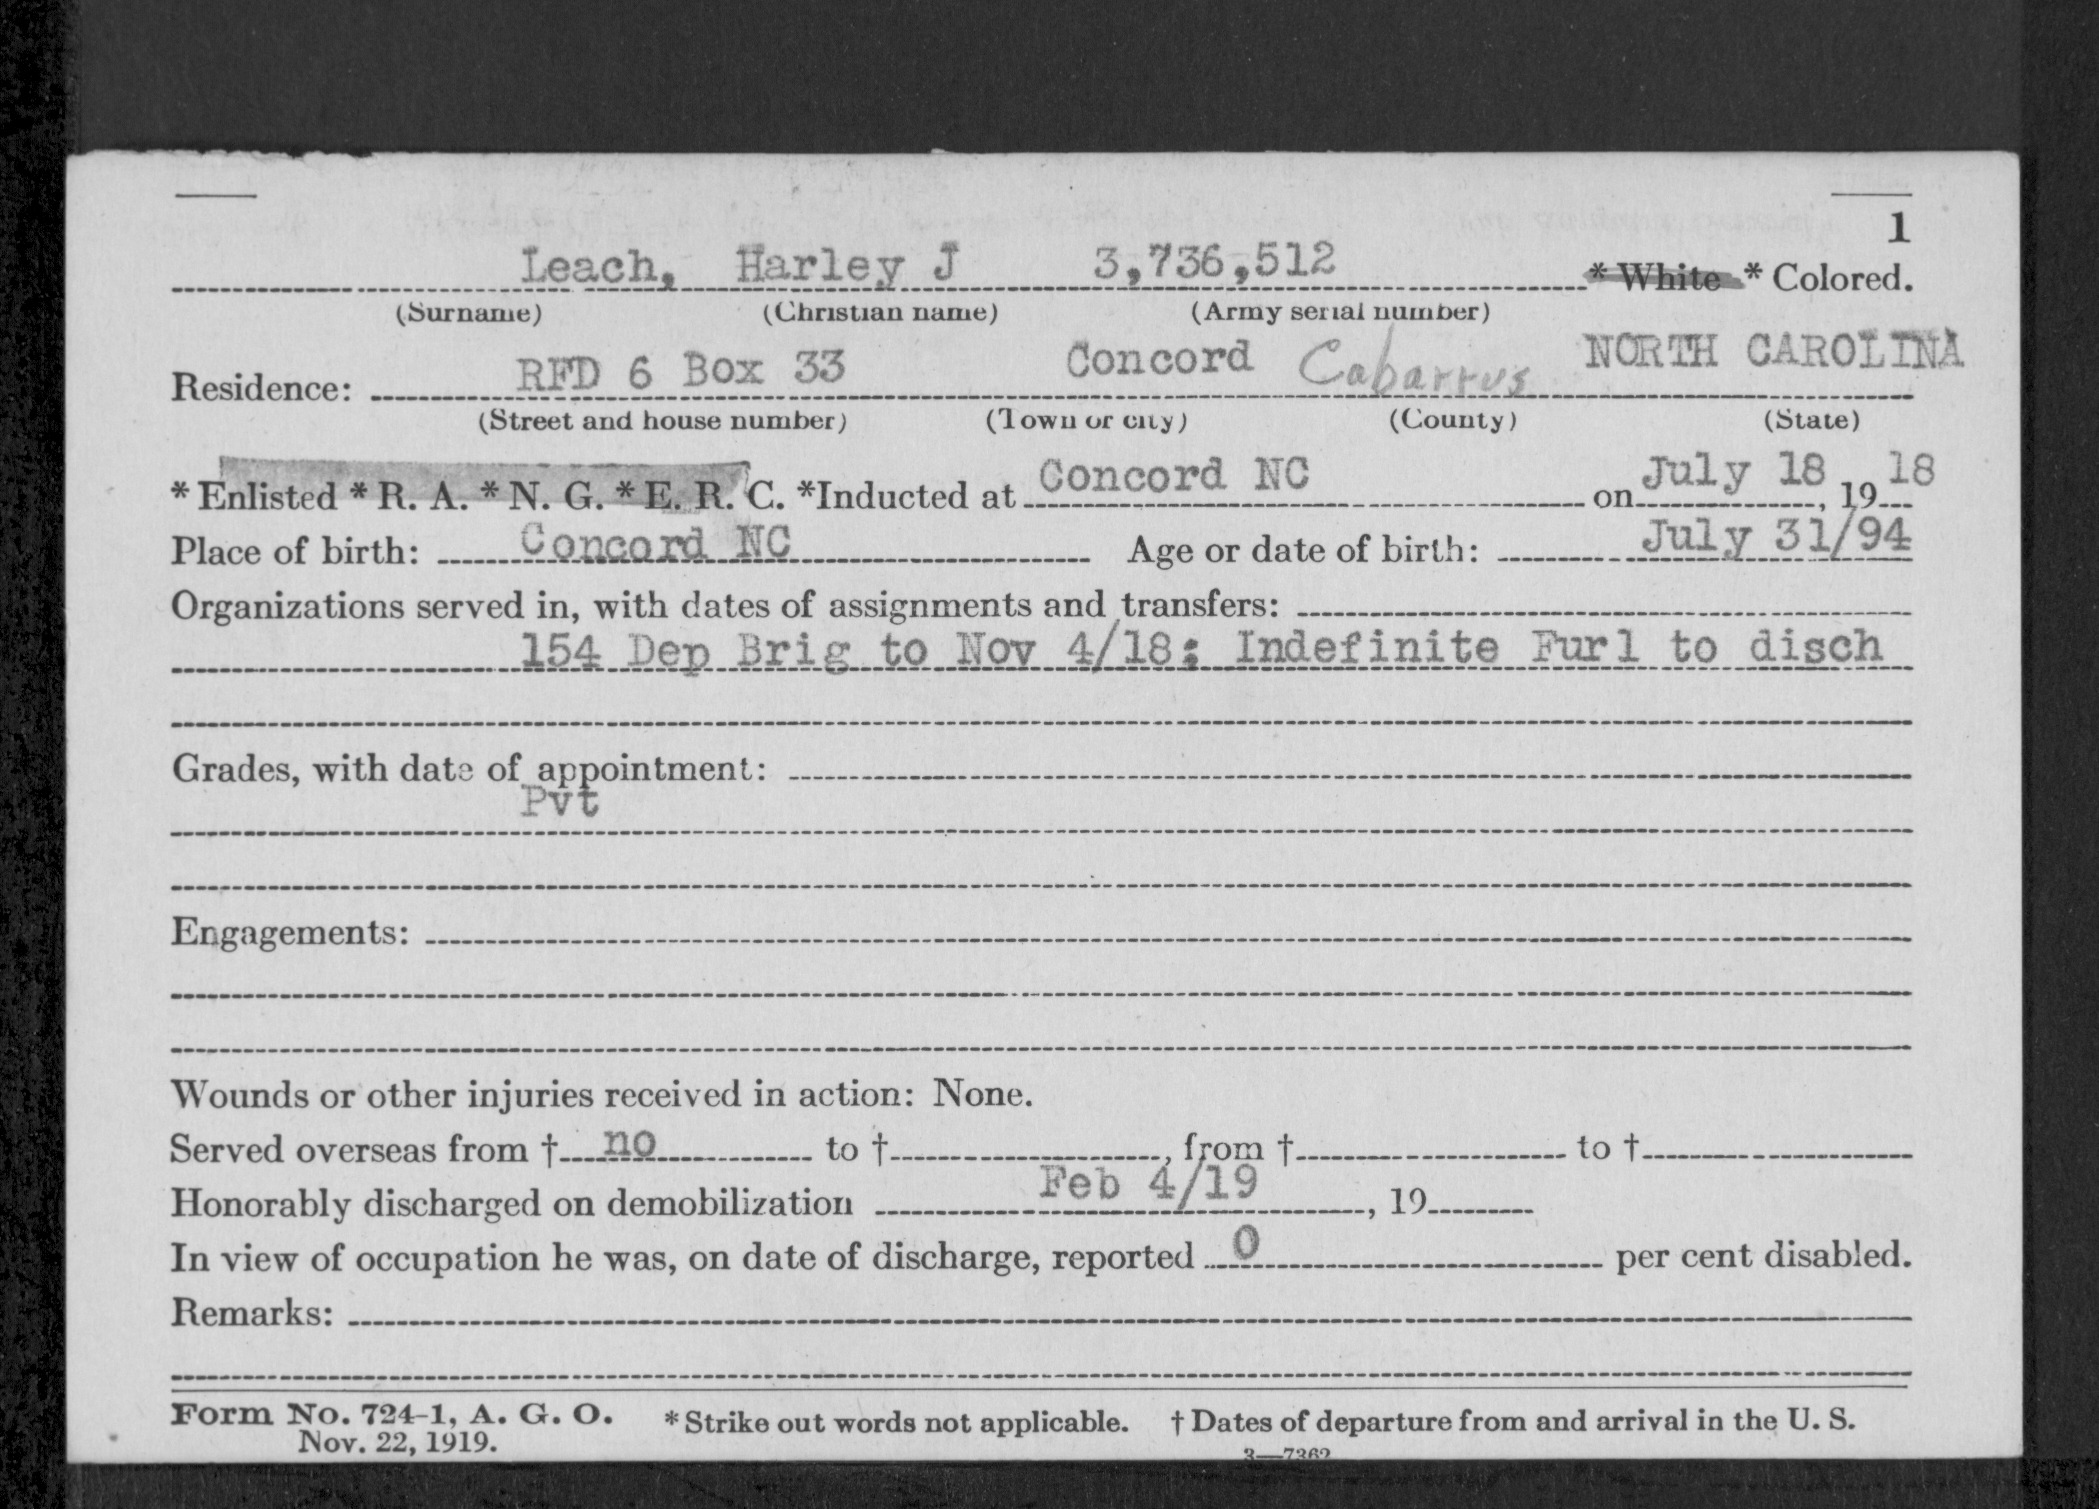 1
Leach, Harley J 3,736,512 * White * Colored.
(Surname) (Christian name) (Army serial number)
Residence: RFD 6 Box 33 Concord Cabarrus NORTH CAROLINA
(Street and house number) (Town or city) (County) (State)
* Enlisted * R. A. * N. G. * E. R. C. *Inducted at Concord NC on July 18, 19 18
Place of birth: Concord NC Age or date of birth: July 31/94
Organizations served in, with dates of assignments and transfers:
154 Dep Brig to Nov 4/18; Indefinite Furl to disch
Grades, with date of appointment:
Pvt
Engagements:
Wounds or other injuries received in action: None.
Served overseas from † no to †, from † to †
Honorably discharged on demobilization Feb 4/19, 19
In view of occupation he was, on date of discharge, reported 0 per cent disabled.
Remarks:
Form No. 724-1, A. G. O. * Strike out words not applicable. † Dates of departure from and arrival in the U. S.
Nov. 22, 1919.
3—7362